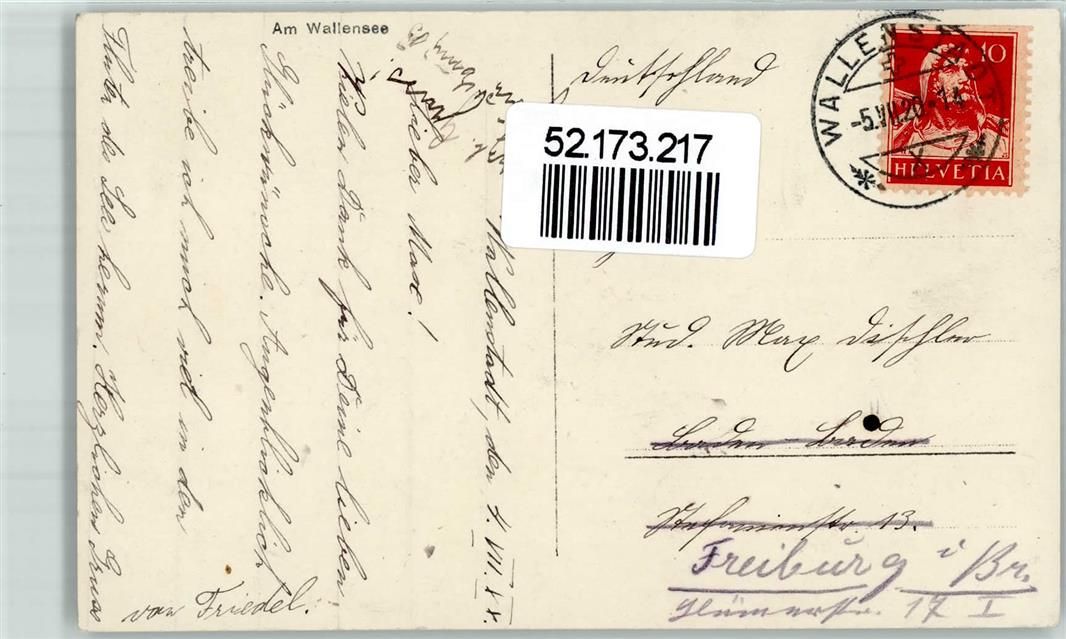 Am Wallensee
Wallenstadt, den 4. VII. XX.
Lieber Max!
Vielen Dank für Deine lieben
Glückwünsche. Augenblicklich
treibe ich mich viel in den
der See herum. Herzlichen Gruss
von Friedel.
52.173.217
WALLENSTADT
-5.VII.20.-14
10
HELVETIA
Deutschland
Stud. Max Dischler
Baden-Baden
Stefanienstr. 13.
Freiburg i Br.
17 I